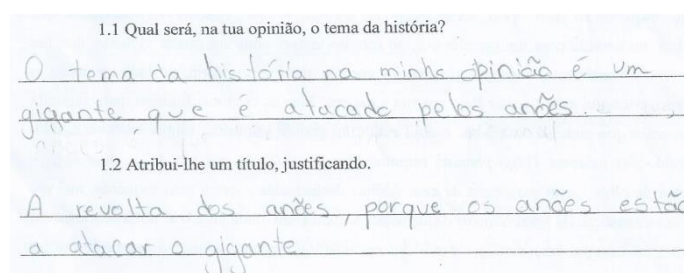 1.1 Qual será, na tua opinião, o tema da história?
O tema da história na minha opinião é um
gigante que é atacado pelos anões.
1.2 Atribui-lhe um título, justificando.
A revolta dos anões, porque os anões estão
a atacar o gigante.